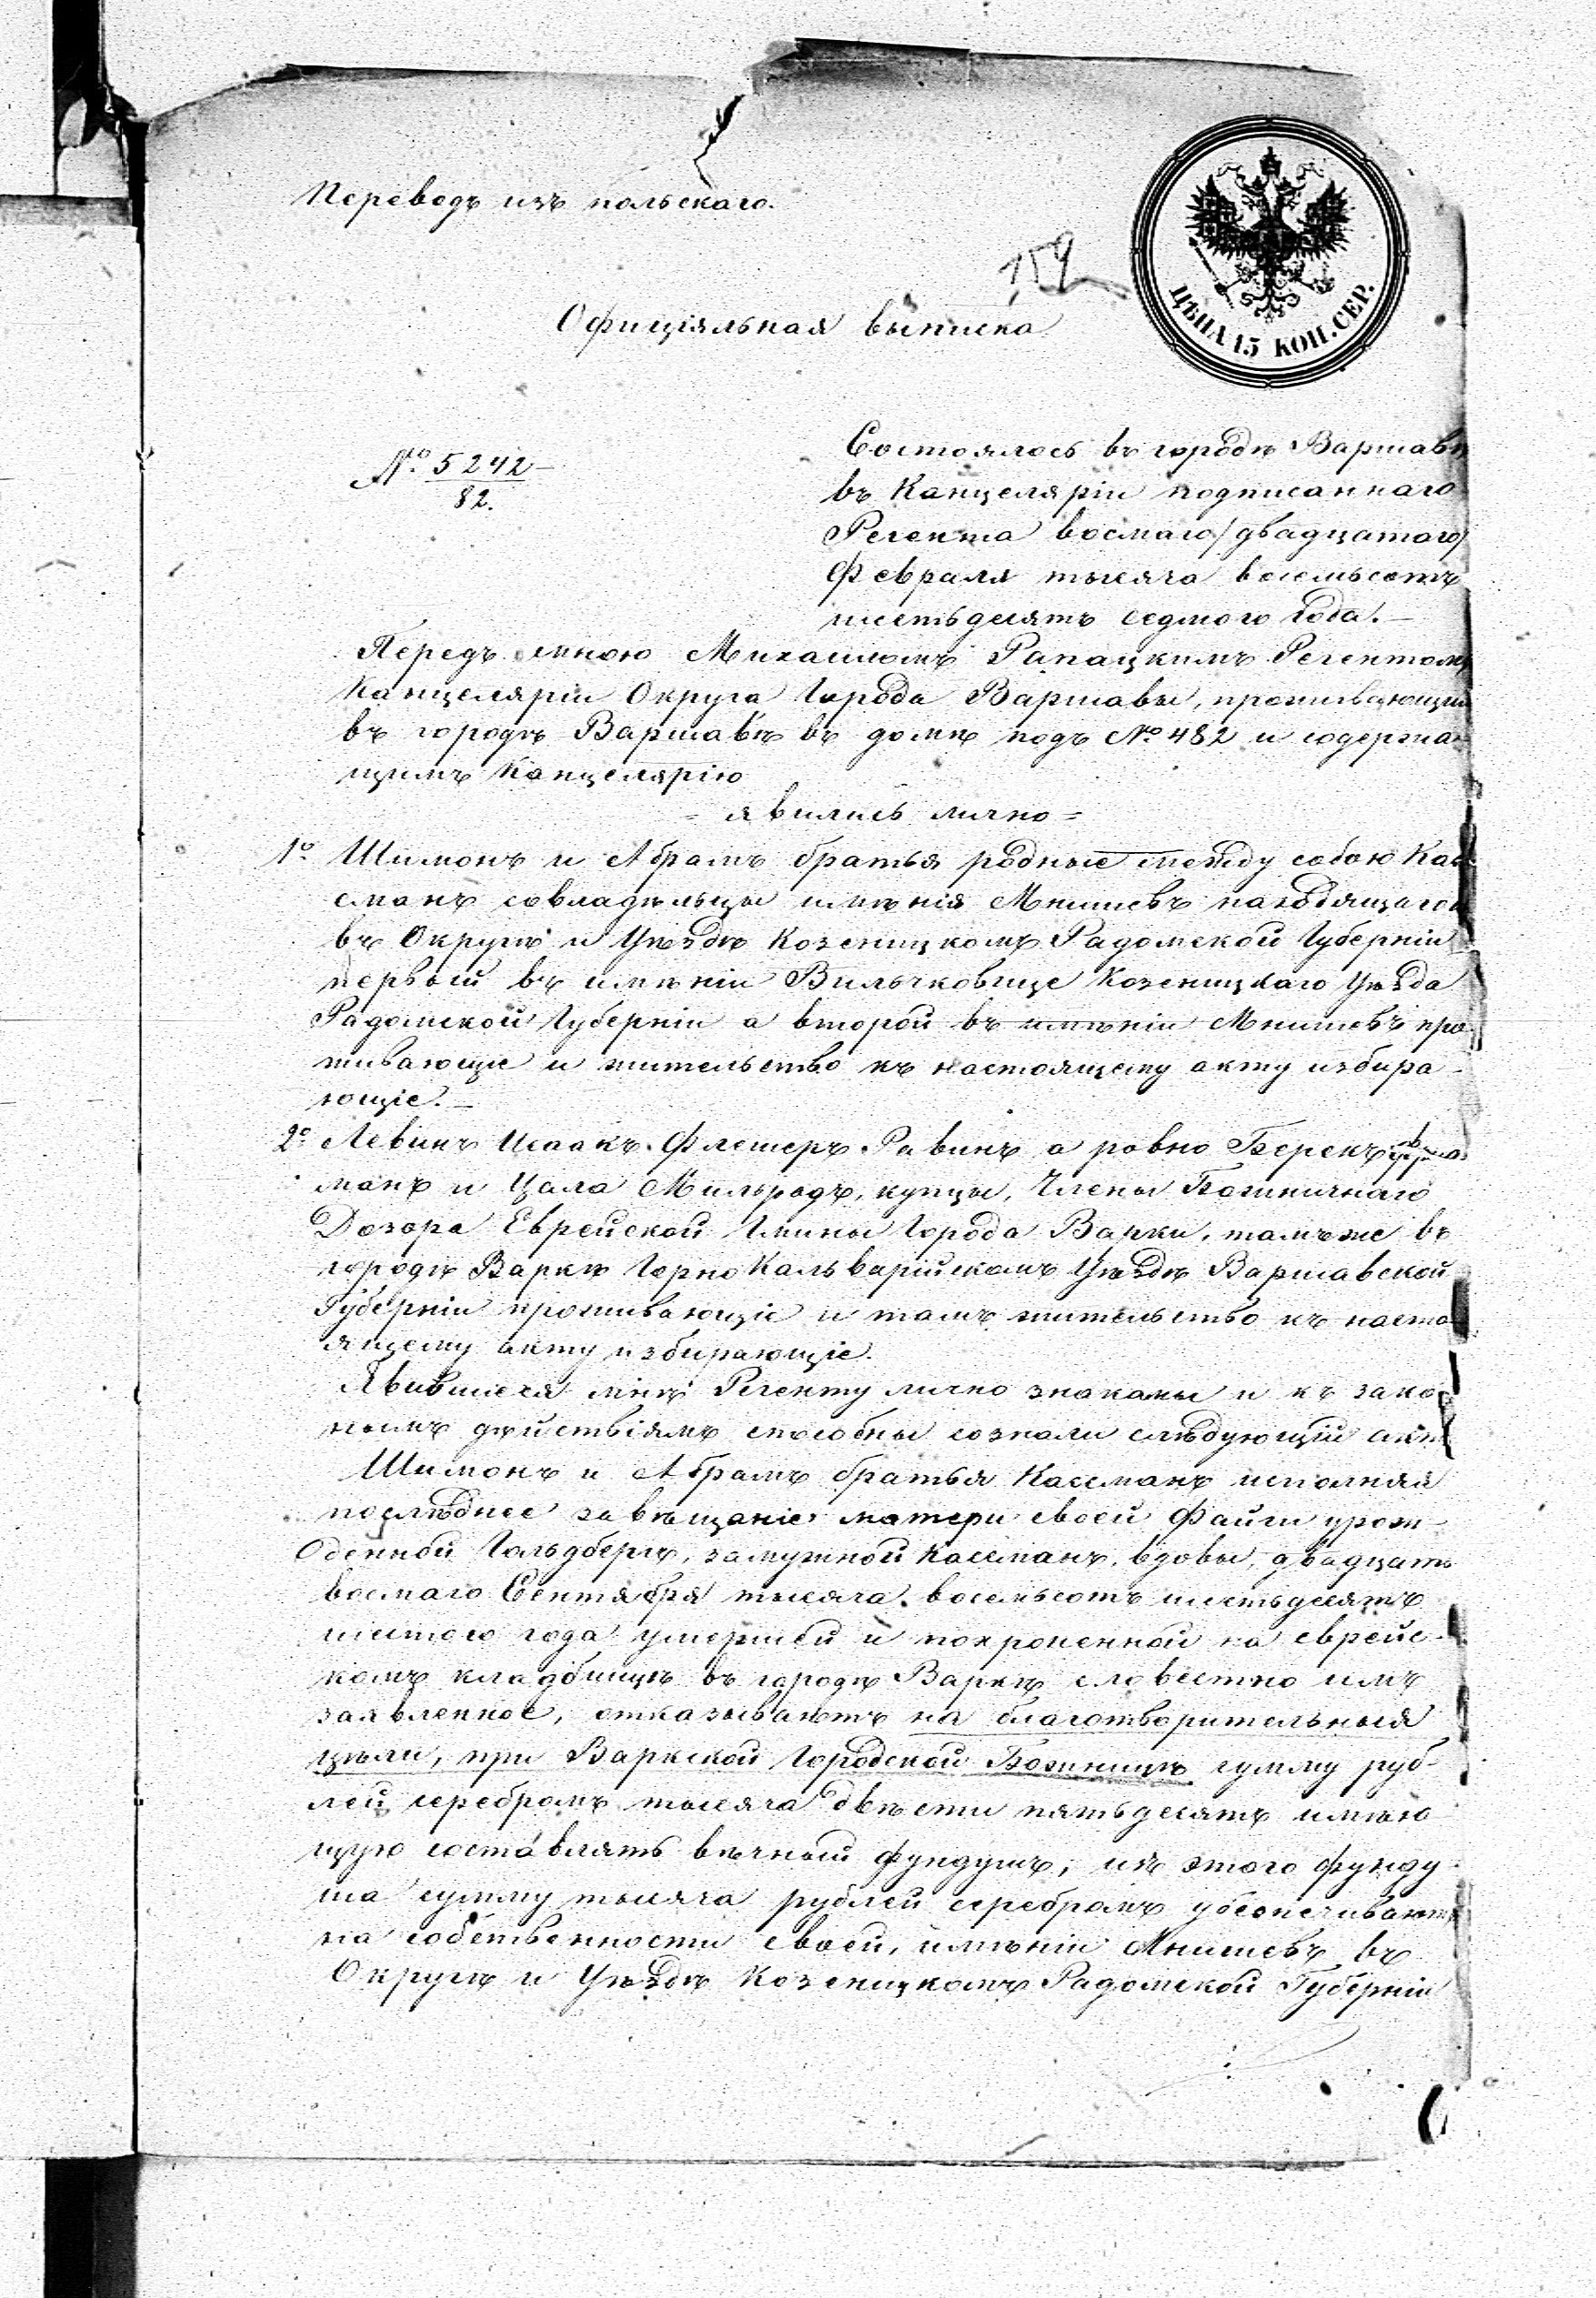 Переводъ изъ польскаго.
159
ЦѢНА 15 КОП. СЕР.
Официіяльная выписка
№ 5242
82.
Состоялось въ городѣ Варшавѣ
въ Канцеляріи подписаннаго
Регента восмаго/двадцатаго/
Февраля тысяча восемьсотъ
шестьдесятъ седмого года.
Передъ мною Михаиломъ Рапацкимъ Регентомъ
Канцеляріи Округа Города Варшавы, проживающимъ
въ городѣ Варшавѣ въ домѣ подъ № 482 и содержа-
щимъ Канцелярію
= явились лично =
1º Шимонъ и Абрамъ братья родные между собою Кас-
сманъ совладѣльцы имѣнія Мнишевъ находящагося
въ Округѣ и Уѣздѣ Козеницкомъ Радомской Губерніи
первый въ имѣніи Вильчковице Козеницкаго Уѣзда
Радомской Губерніи а второй въ имѣніи Мнишевъ про-
живающіе и жительство къ настоящему акту избира-
ющіе.
2º Левинъ Исаакъ Флешеръ Равинъ а ровно Берекъ
манъ и Цала Мильродъ, купцы, Члены Божничнаго
Дозора Еврейской Гмины Города Варки, тамъ же въ
городѣ Варкѣ Горно Кальварійскомъ Уѣздѣ Варшавской
Губерніи проживающіе и тамъ жительство къ насто-
ящему акту избирающіе.
Явившіеся мнѣ Регенту лично знакомы и къ зако-
ннымъ дѣйствіямъ способны сознали слѣдующій актъ
Шимонъ и Абрамъ братья Кассманъ исполняя
послѣднее завѣщаніе матери своей Файги урож-
денной Гольдбергъ, замужной Кассманъ, вдовы, двадцать
восмаго Сентября тысяча восемьсотъ шестьдесятъ
шестого года умершей и похороненной на еврейс-
комъ кладбищѣ въ городѣ Варкѣ словестно имъ
заявленное, отказываютъ на благотворительныя
цѣли, при Варкской Городской Божницѣ сумму руб-
лей серебромъ тысяча двѣсти пятьдесятъ имѣю-
щую составлять вѣчный фундушъ, изъ этого фунду-
ша сумму тысяча рублей серебромъ убеспечиваютъ
на собственности своей, имѣніи Мнишевъ въ
Округѣ и Уѣздѣ Козеницкомъ Радомской Губерніи